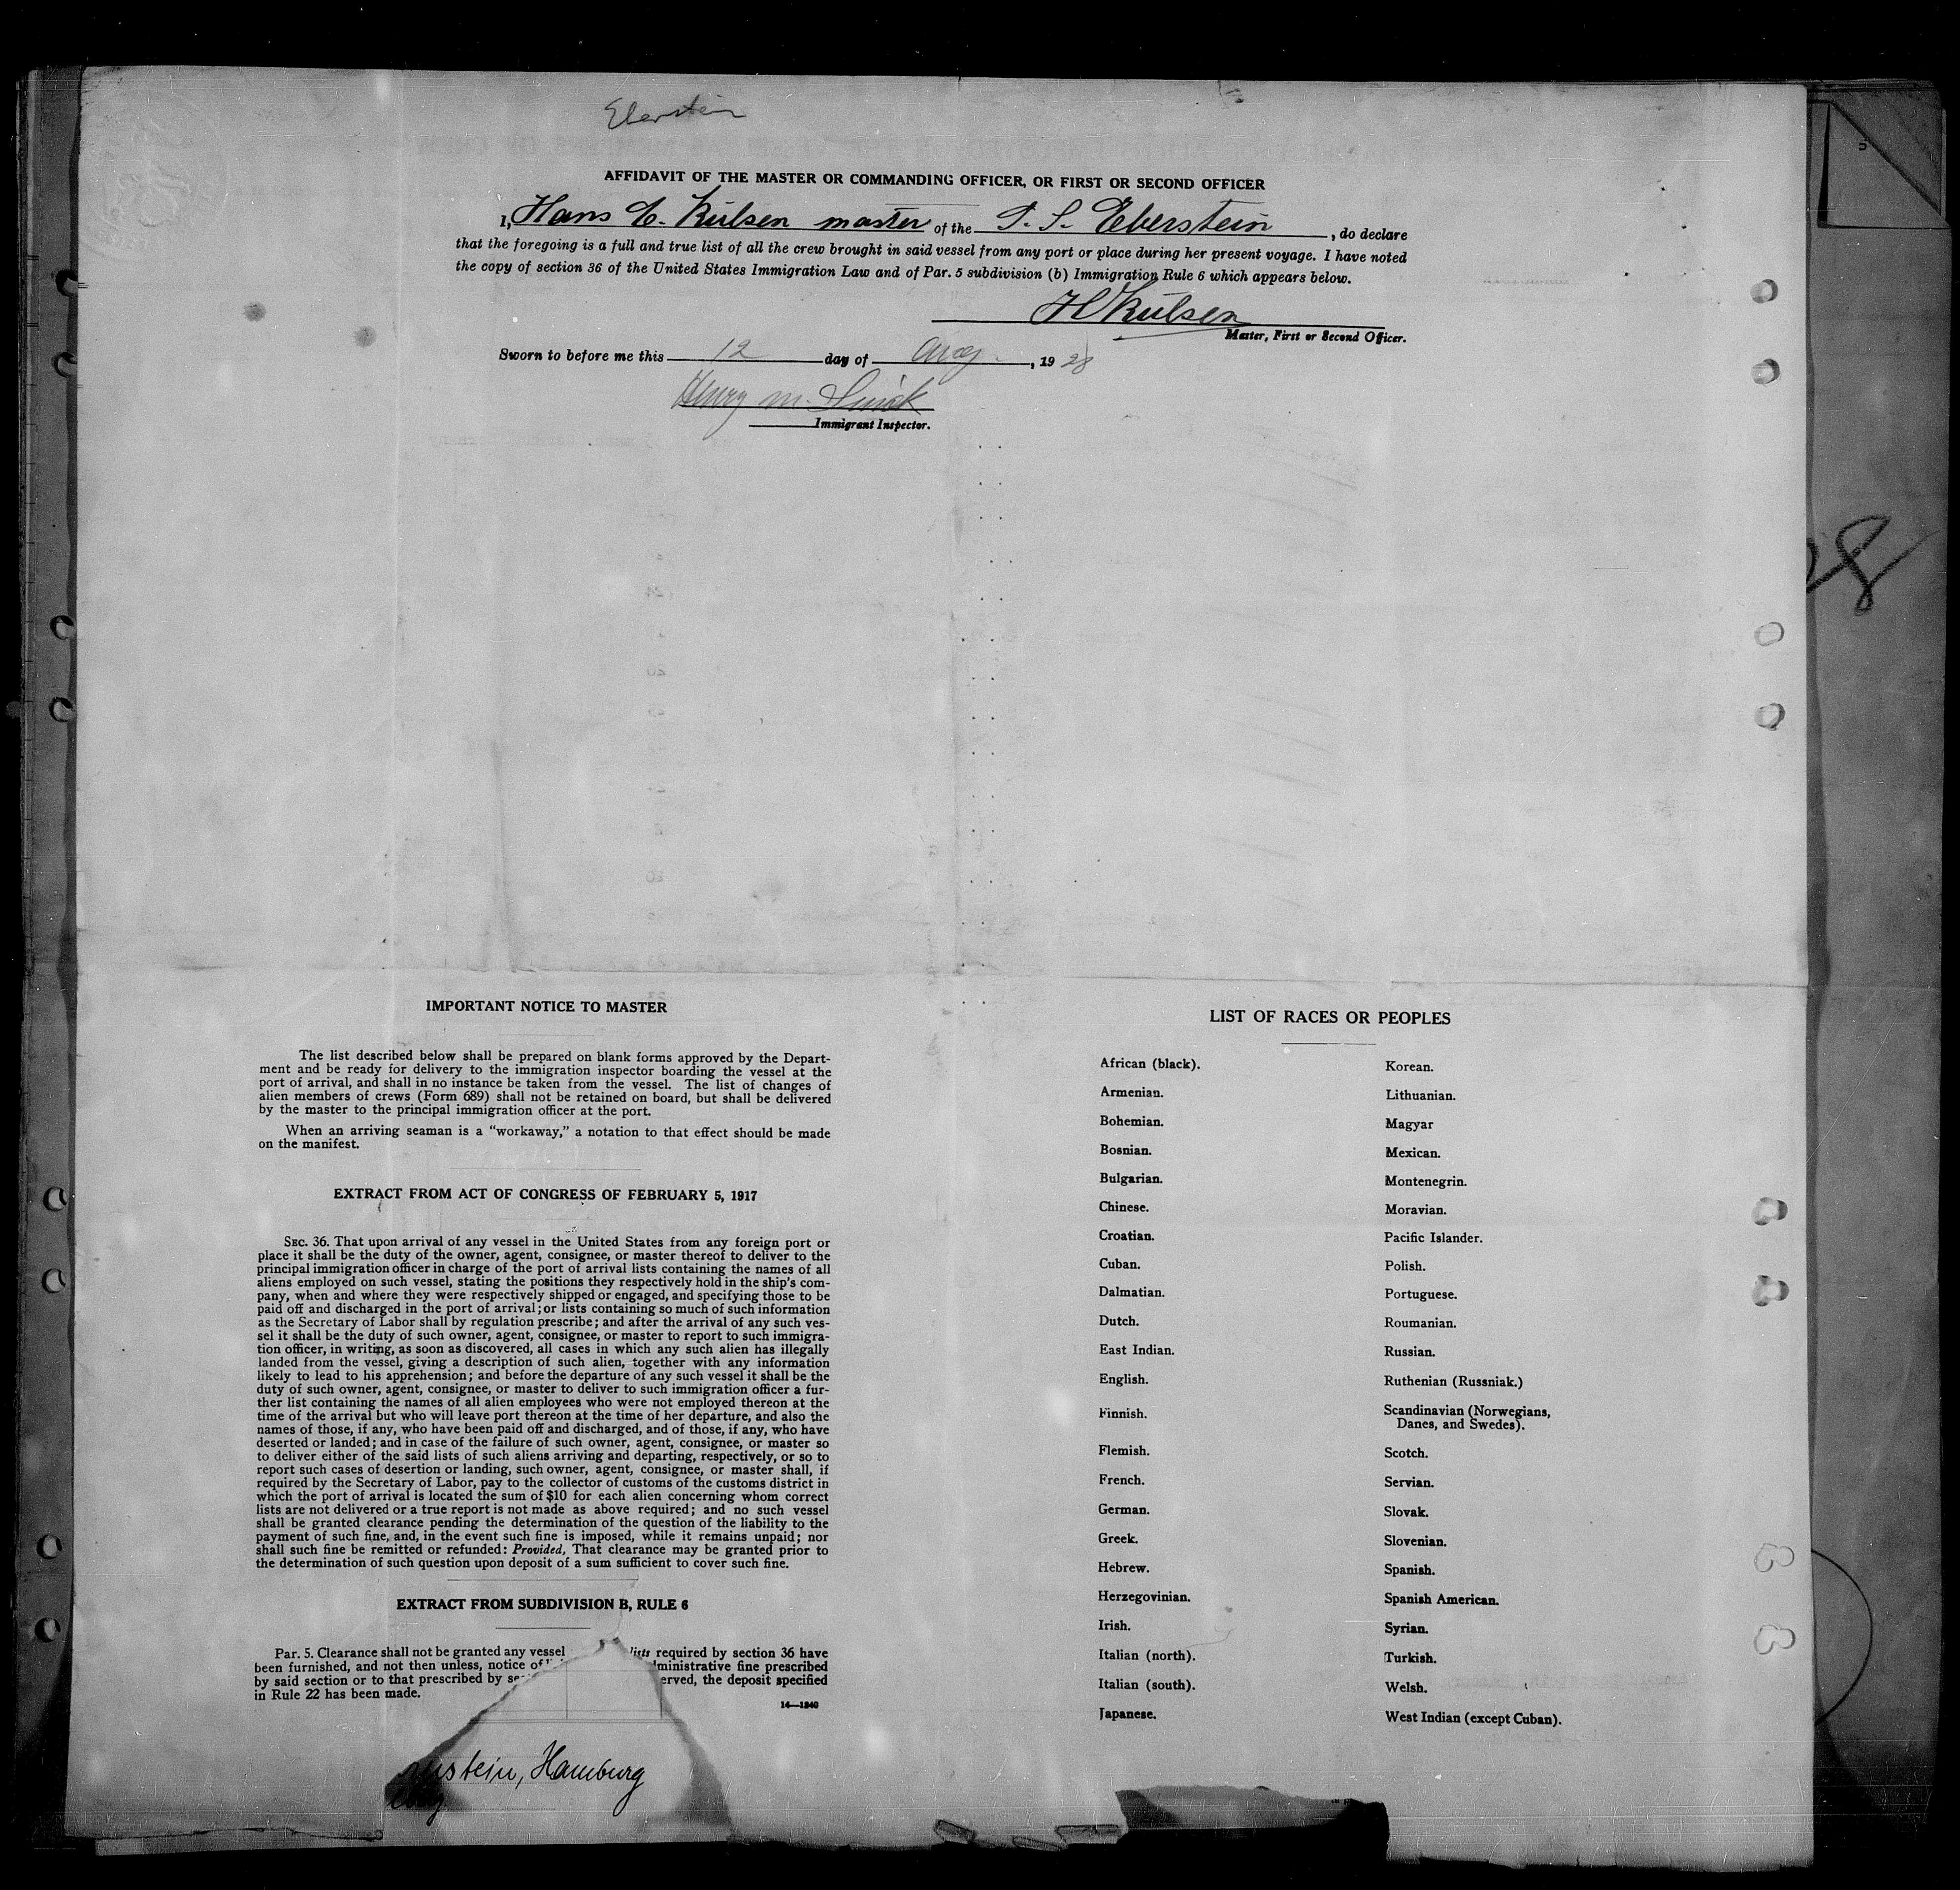 Eberstein
AFFIDAVIT OF THE MASTER OR COMMANDING OFFICER, OR FIRST OR SECOND OFFICER
I, Hans C. Külsen master of the S. S. Eberstein, do declare
that the foregoing is a full and true list of all the crew brought in said vessel from any port or place during her present voyage. I have noted
the copy of section 36 of the United States Immigration Law and of Par. 5 subdivision (b) Immigration Rule 6 which appears below.
H Külsen
Master, First or Second Officer.
Sworn to before me this 12 day of Aug. , 1928
Henry M.
Immigrant Inspector.
28
IMPORTANT NOTICE TO MASTER
The list described below shall be prepared on blank forms approved by the Depart-
ment and be ready for delivery to the immigration inspector boarding the vessel at the
port of arrival, and shall in no instance be taken from the vessel. The list of changes of
alien members of crews (Form 689) shall not be retained on board, but shall be delivered
by the master to the principal immigration officer at the port.
When an arriving seaman is a "workaway," a notation to that effect should be made
on the manifest.
EXTRACT FROM ACT OF CONGRESS OF FEBRUARY 5, 1917
SEC. 36. That upon arrival of any vessel in the United States from any foreign port or
place it shall be the duty of the owner, agent, consignee, or master thereof to deliver to the
principal immigration officer in charge of the port of arrival lists containing the names of all
aliens employed on such vessel, stating the positions they respectively hold in the ship's com-
pany, when and where they were respectively shipped or engaged, and specifying those to be
paid off and discharged in the port of arrival; or lists containing so much of such information
as the Secretary of Labor shall by regulation prescribe; and after the arrival of any such ves-
sel it shall be the duty of such owner, agent, consignee, or master to report to such immigra-
tion officer, in writing, as soon as discovered, all cases in which any such alien has illegally
landed from the vessel, giving a description of such alien, together with any information
likely to lead to his apprehension; and before the departure of any such vessel it shall be the
duty of such owner, agent, consignee, or master to deliver to such immigration officer a fur-
ther list containing the names of all alien employees who were not employed thereon at the
time of the arrival but who will leave port thereon at the time of her departure, and also the
names of those, if any, who have been paid off and discharged, and of those, if any, who have
deserted or landed; and in case of the failure of such owner, agent, consignee, or master so
to deliver either of the said lists of such aliens arriving and departing, respectively, or so to
report such cases of desertion or landing, such owner, agent, consignee, or master shall, if
required by the Secretary of Labor, pay to the collector of customs of the customs district in
which the port of arrival is located the sum of $10 for each alien concerning whom correct
lists are not delivered or a true report is not made as above required; and no such vessel
shall be granted clearance pending the determination of the question of the liability to the
payment of such fine, and, in the event such fine is imposed, while it remains unpaid; nor
shall such fine be remitted or refunded: Provided, That clearance may be granted prior to
the determination of such question upon deposit of a sum sufficient to cover such fine.
EXTRACT FROM SUBDIVISION B, RULE 6
Par. 5. Clearance shall not be granted any vessel lists required by section 36 have
been furnished, and not then unless, notice of ministrative fine prescribed
by said section or to that prescribed by se erved, the deposit specified
in Rule 22 has been made.
14—1240
stein, Hamburg
LIST OF RACES OR PEOPLES
African (black).
Armenian.
Bohemian.
Bosnian.
Bulgarian.
Chinese.
Croatian.
Cuban.
Dalmatian.
Dutch.
East Indian.
English.
Finnish.
Flemish.
French.
German.
Greek.
Hebrew.
Herzegovinian.
Irish.
Italian (north).
Italian (south).
Japanese.
Korean.
Lithuanian.
Magyar
Mexican.
Montenegrin.
Moravian.
Pacific Islander.
Polish.
Portuguese.
Roumanian.
Russian.
Ruthenian (Russniak.)
Scandinavian (Norwegians,
Danes, and Swedes).
Scotch.
Servian.
Slovak.
Slovenian.
Spanish.
Spanish American.
Syrian.
Turkish.
Welsh.
West Indian (except Cuban).